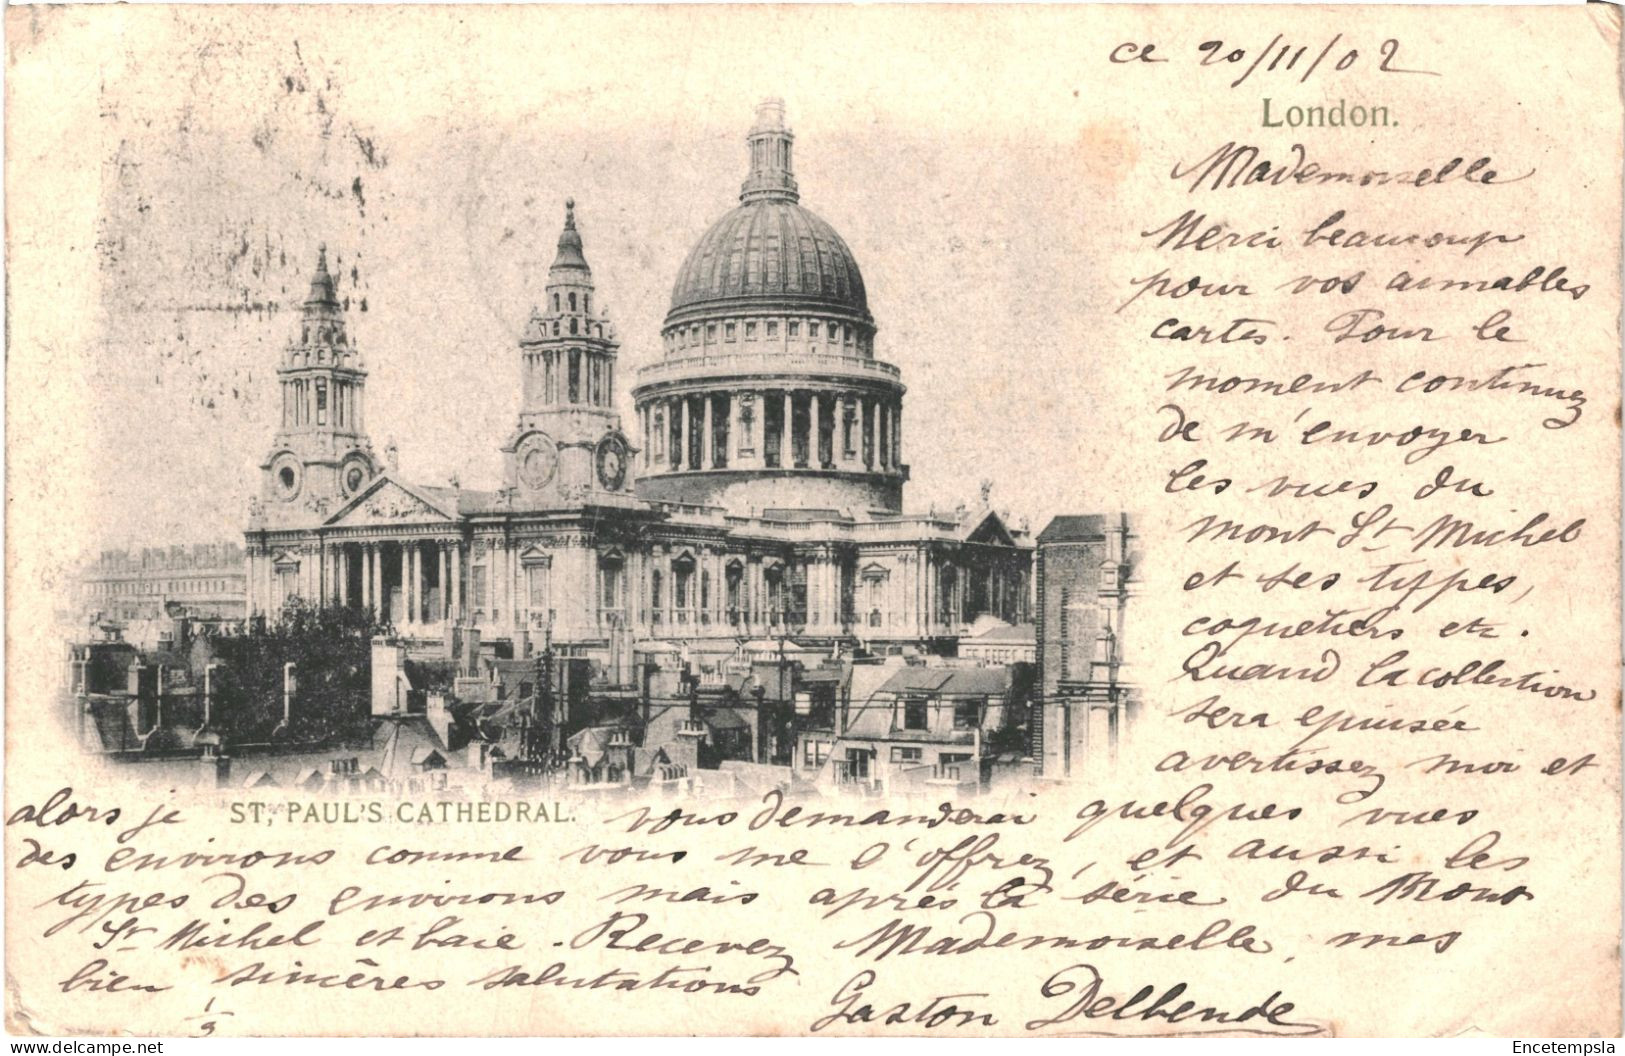 ce 20/11/02
London.
Mademoiselle
Merci beaucoup
pour vos aimables
cartes. Pour le
moment continuez
de m'envoyer
les vues du
mont St Michel
et ses types,
coquetiers etc.
Quand la collection
sera épuisée
avertissez moi et
alors je
ST, PAUL'S CATHEDRAL.
vous demanderai quelques vues
des environs comme vous me l'offrez, et aussi les
types des environs mais après la série du Mont
St Michel et baie. Recevez Mademoiselle, mes
bien sincères salutations
Gaston Delbende
www.delcampe.net
Encetempsla